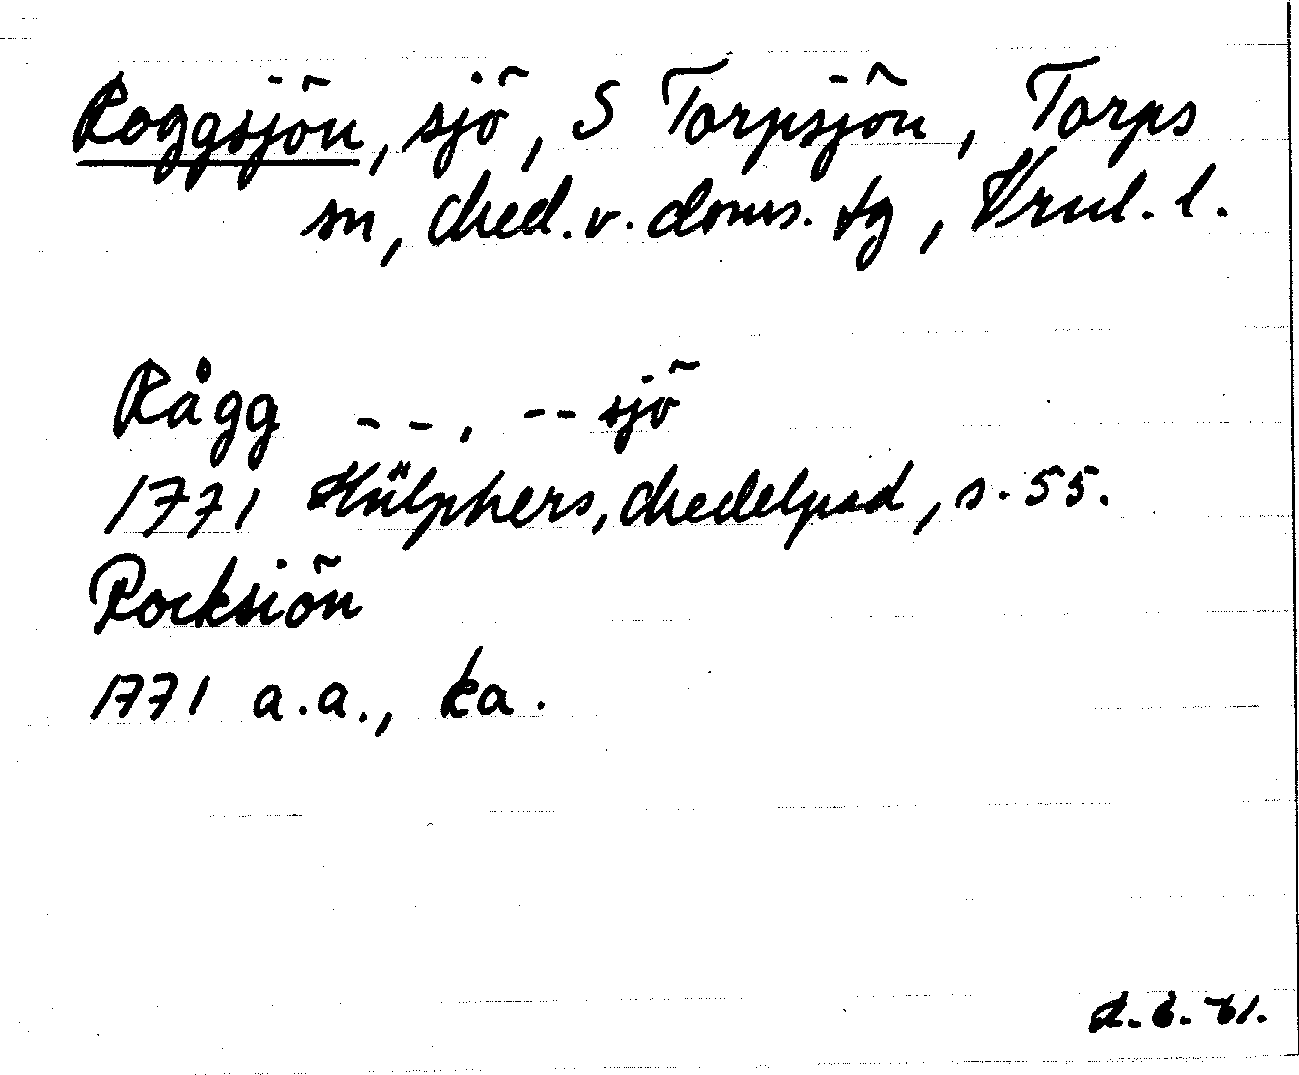 Roggsjön, sjö, S Torpsjön, Torps
sn, Med. v. doms. tg, Vrnl. l.
Rågg - -, - - sjö
1771 Hülphers, Medelpad, s. 55.
Rocksiön
1771 a.a., ka.